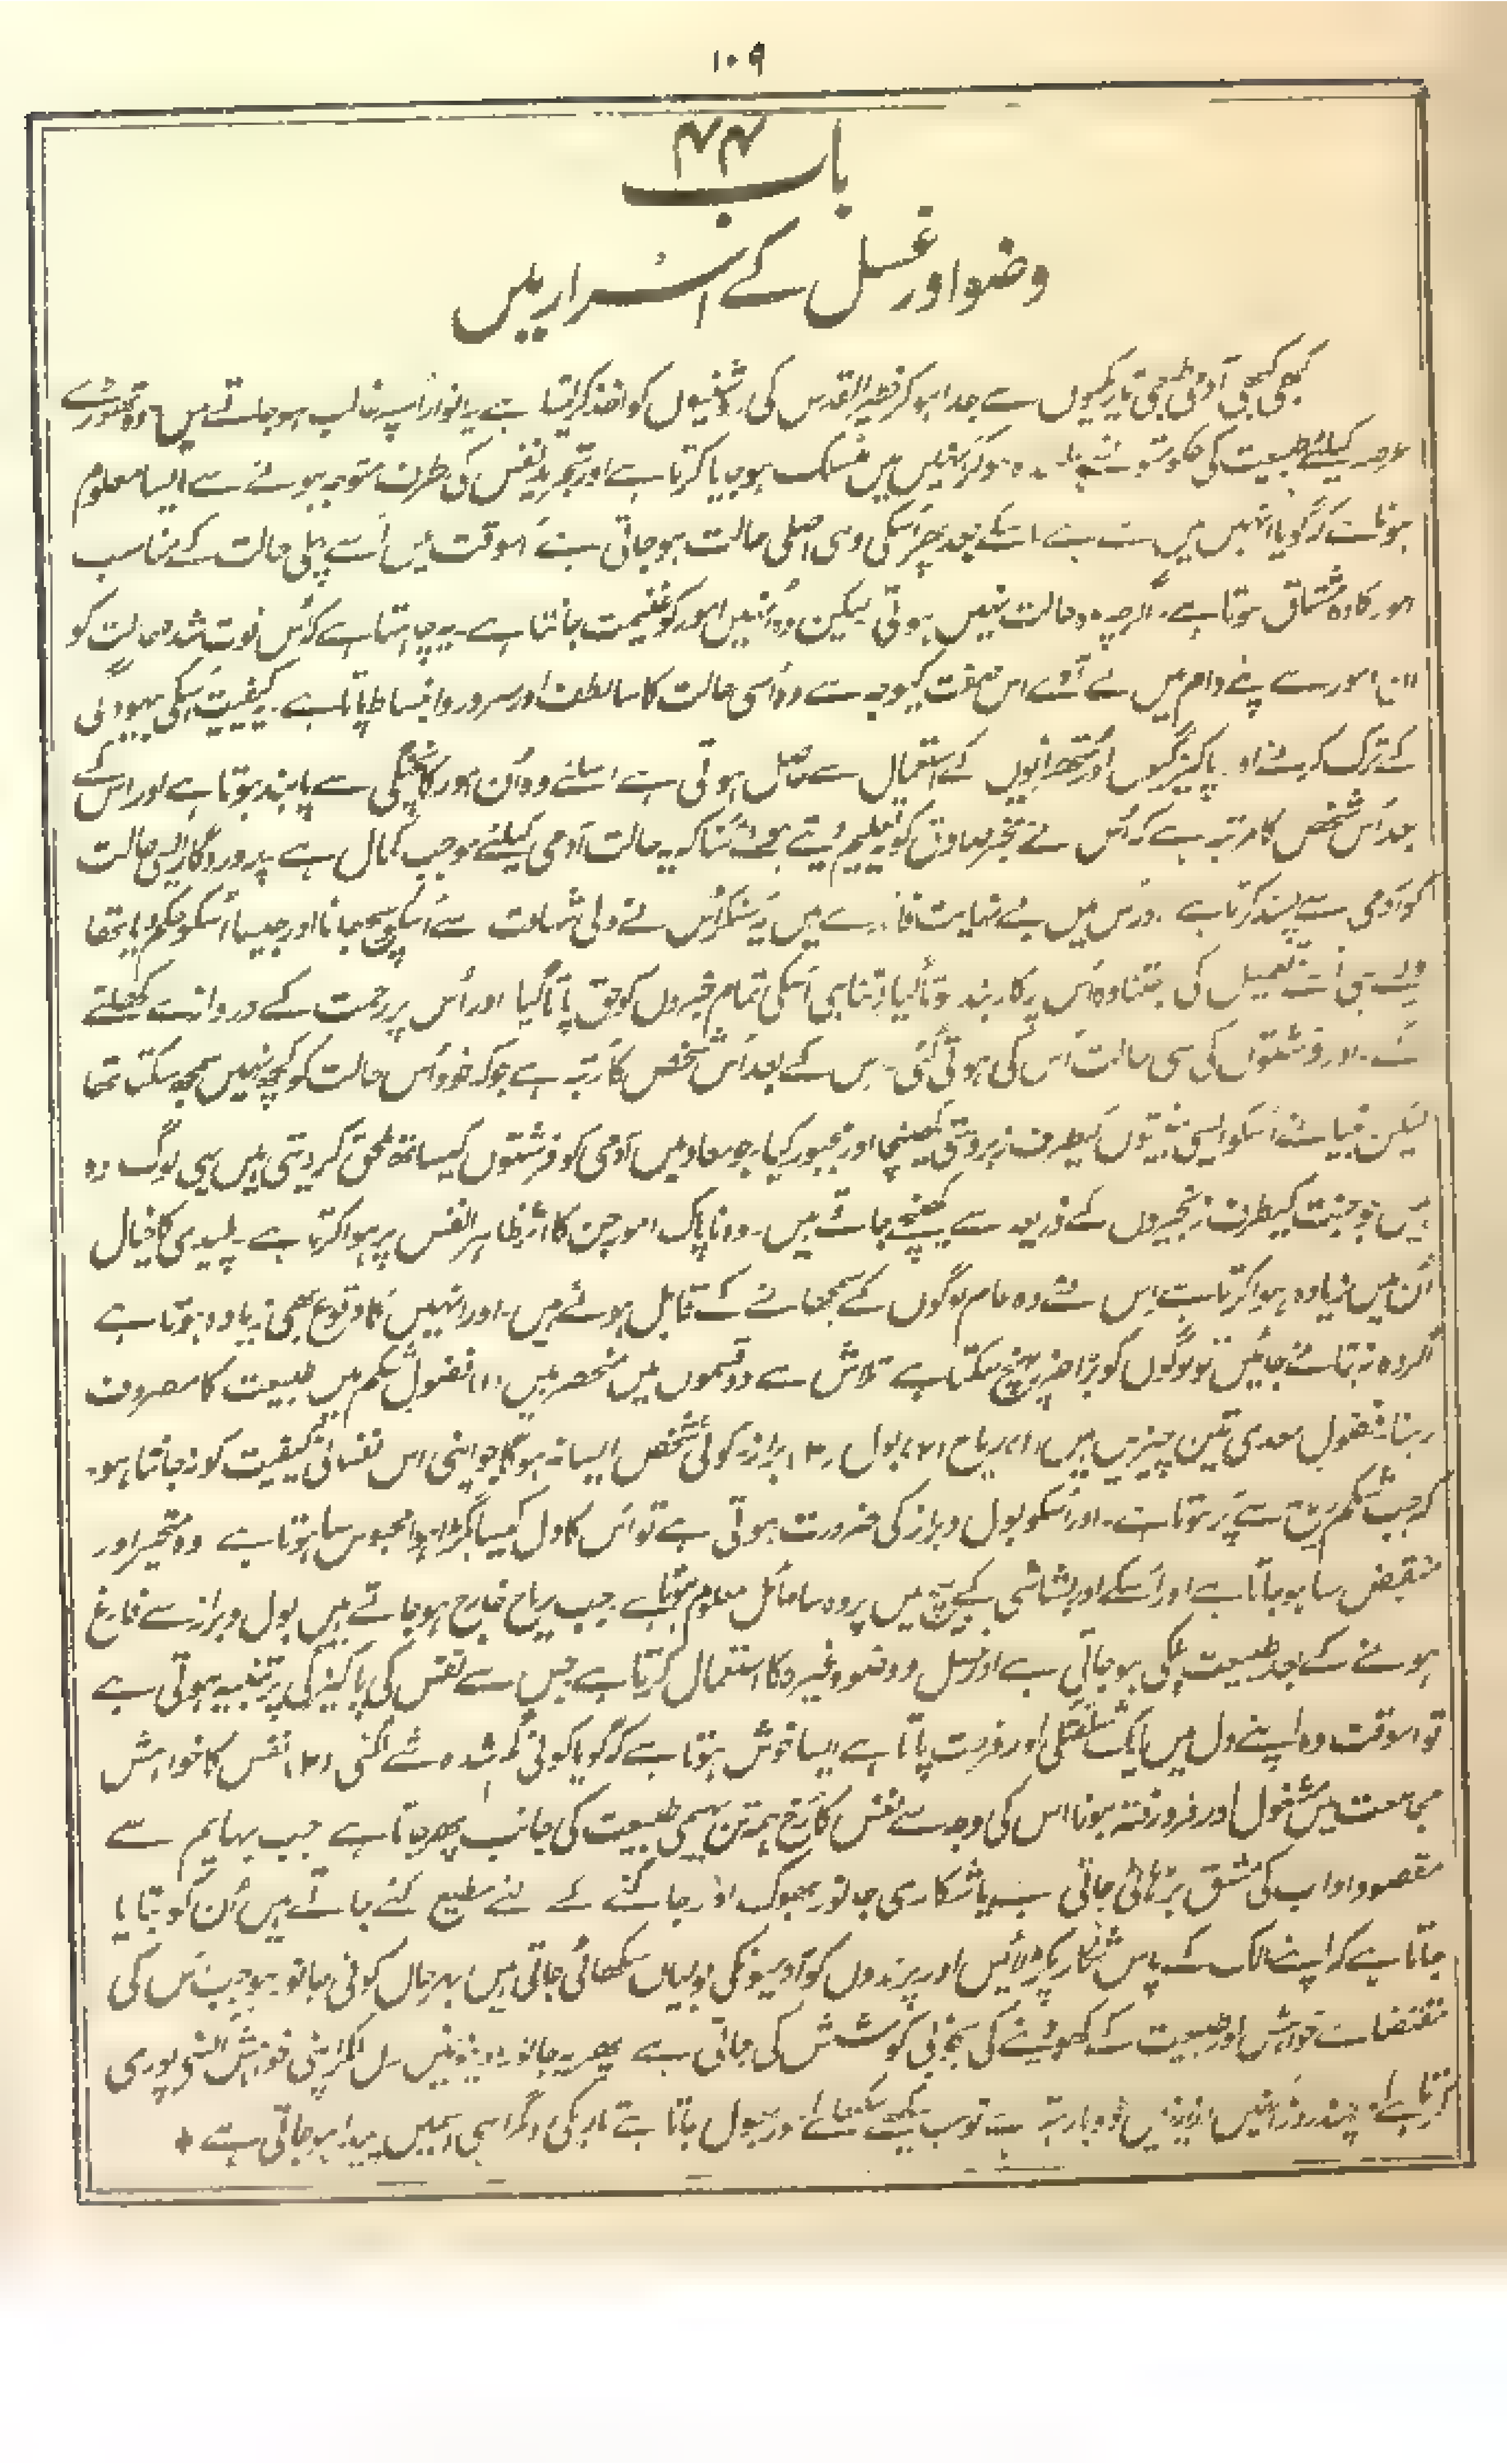 ۱۰۹
باب ۴۴
وضو اور غسل کے اسرار میں
کبھی کبھی آدمی طبعی تاریکیوں سے جدا ہو کر خطیرالقدس کی روشنیوں کو اخذ کر لیتا ہے یہ انوار اُسپر غالب ہو جاتے ہیں وہ تھوڑے
عرصہ کیلئے طبیعت کی حکومتوں سے ہو کر انہیں میں منسلک ہو جایا کرتا ہے اور تجرید نفس کی طرف متوجہ ہونے سے ایسا معلوم
ہوتا ہے کہ گویا انہیں میں سے ہے اسکے بعد پھر اُسکی وہی اصلی حالت ہو جاتی ہے اسوقت میں اُسے پہلی حالت کے مناسب
امور کا وہ مشتاق ہوتا ہے اگرچہ وہ حالت نہیں ہوتی لیکن وہ انہیں امور کو غنیمت جانتا ہے یہ چاہتا ہے کہ اُس فوت شدہ حالت کو
ان امور سے اپنے دام میں لے آئے اس صفت کیوجہ سے وہ اُسی حالت کا سا لطف اور سرور و انبساط پاتا ہے یہ کیفیت اُسکی بیہودگی
کے ترک کرنے اور پاکیزگیوں اور ستھرائیوں کے استعمال سے حاصل ہوتی ہے اسلئے وہ اُن امور کا پختگی سے پابند ہوتا ہے اور اس کے
بعد اُس شخص کا مرتبہ ہے کہ اُس نے مخبر صادق کو تعلیم دیتے ہوئے سُنا کہ یہ حالت آدمی کیلئے موجب کمال ہے پروردگار ایسی حالت
کو آدمی سے پسند کرتا ہے۔ اور اس میں بے نہایت فائدے ہیں یہ سنکر اُس نے دلی شہادت سے اُسکو سچ جانا اور جیسا اُسکو حکم دیا تھا
ویسے ہی اُسنے تعمیل کی جتنا وہ اُس پر کاربند ہوتا گیا اتنا ہی اُسکی تمام خبروں کو حق پاتا گیا اور اُس پر رحمت کے دروازے کھلتے
گئے۔ اور فرشتوں کی سی حالت اُس کی ہوتی گئی۔ اس کے بعد اُس شخص کا رتبہ ہے جو کہ خود اُس حالت کو کچھ نہیں سمجھ سکتا تھا
لیکن انبیا نے اُسکو ایسی ہیئتوں کیطرف زبردستی کھینچا اور مجبور کیا، جو معاد میں آدمی کو فرشتوں کیساتھ ملحق کر دیتی ہیں یہی لوگ وہ
ہیں جو جنت کیطرف زنجیروں کے ذریعہ سے کھینچے جاتے ہیں۔ وہ ناپاک امور جن کا اثر ظاہر النفس پر ہوا کرتا ہے۔ پلیدی کا خیال
اُن میں زیادہ ہوا کرتا ہے اس لئے وہ عام لوگوں کے سمجھانے کے قابل ہوئے ہیں۔ اور انہیں کا وقوع بھی زیادہ ہوتا ہے
اگر وہ نہ بتائے جائیں تو لوگوں کو بڑا ضرر پہنچ سکتا ہے تلاش سے دو قسموں میں منحصر ہیں (۱) فضول شکم میں طبیعت کا مصروف
رہنا فضول معدی تین چیزیں ہیں (۱) ریاح (۲) بول (۳) براز۔ کوئی شخص ایسا نہ ہوگا جو اپنی اس نفسانی کیفیت کو نہ جانتا ہو۔
کہ جب شکم ریح سے پُر ہوتا ہے۔ اور اُسکو بول و براز کی ضرورت ہوتی ہے تو اُس کا دل کیسا بگڑا ہوا محبوس سا ہوتا ہے وہ متحیر اور
منقبض سا ہو جاتا ہے اور اُسکے اور بشاشی کے بیچ میں پردہ سا حائل معلوم ہوتا ہے جب ریاح خارج ہو جاتے ہیں بول و براز سے فارغ
ہونے کے بعد طبیعت ہلکی ہو جاتی ہے اور غسل و وضو وغیرہ کا استعمال کرتا ہے جس سے نفس کی پاکیزگی پر تنبیہ ہوتی ہے
تو اسوقت وہ اپنے دل میں ایک شگفتگی اور فرحت پاتا ہے ایسا خوش ہوتا ہے کہ گویا کوئی گم شدہ شے مل گئی (۲) نفس کا خواہش
مجامعت میں مشغول اور فروزفتہ ہونا اس کی وجہ سے نفس کا رُخ ہمہ تن بہیمی طبیعت کی جانب پھر جاتا ہے جب بہایم سے
مقصود آداب کی مشق بڑھائی جاتی ہے یا شکاری جانور بھوک اور جاگنے کے لئے مطیع کئے جاتے ہیں اُن کو بتایا
جاتا ہے کہ اپنے مالک کے پاس شکار پکڑ لائیں اور پرندوں کو آدمیونکی بولیاں سکھائی جاتی ہیں بہرحال کوئی جانور ہو جب اُس کی
مقتضات خواہش اور طبیعت کے کھودینے کی بخوبی کوشش کی جاتی ہے پھر یہ جانور مادینوں میں مل کر اپنی خواہش نفسی پوری
کرتا ہے۔ چند روز انہیں لذتوں میں ڈوبا رہتا ہے تو سب سیکھے سکھائے امور بھول جاتا ہے تاریکی و گمراہی اسمیں پیدا ہو جاتی ہے ٭